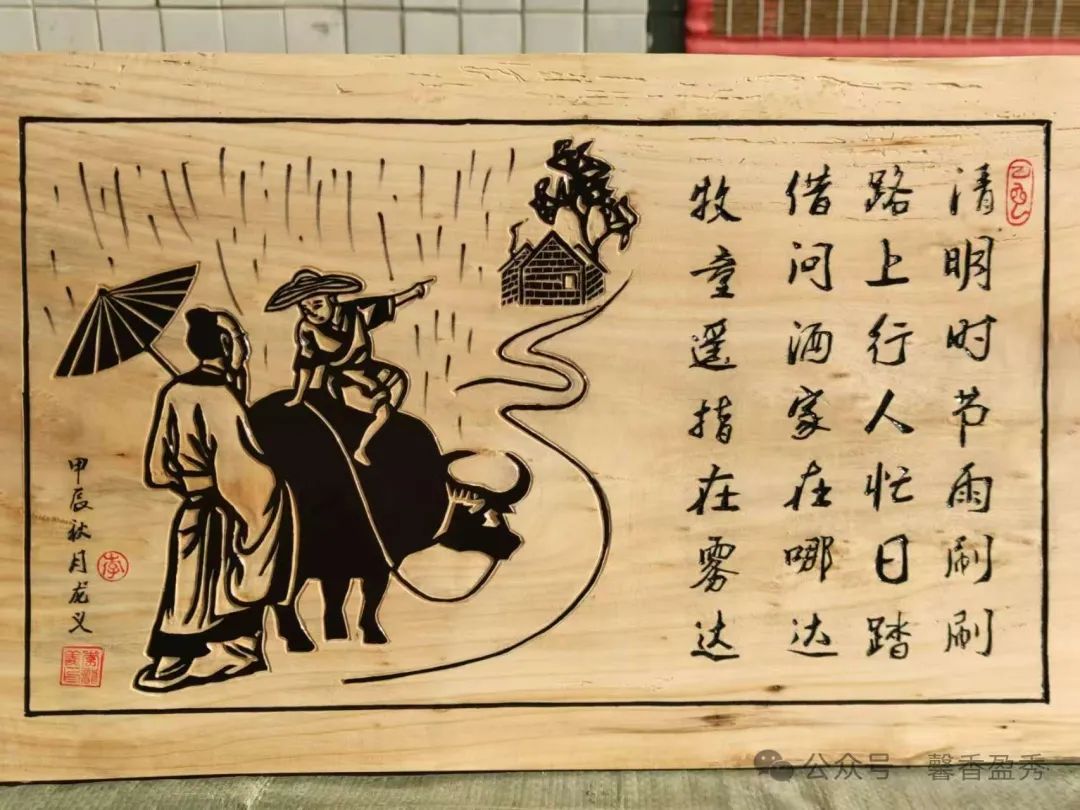 清明时节雨刷刷
路上行人忙日踏
借问酒家在哪达
牧童遥指在雾达
甲辰秋月龙义
李
公众号 馨香盈秀